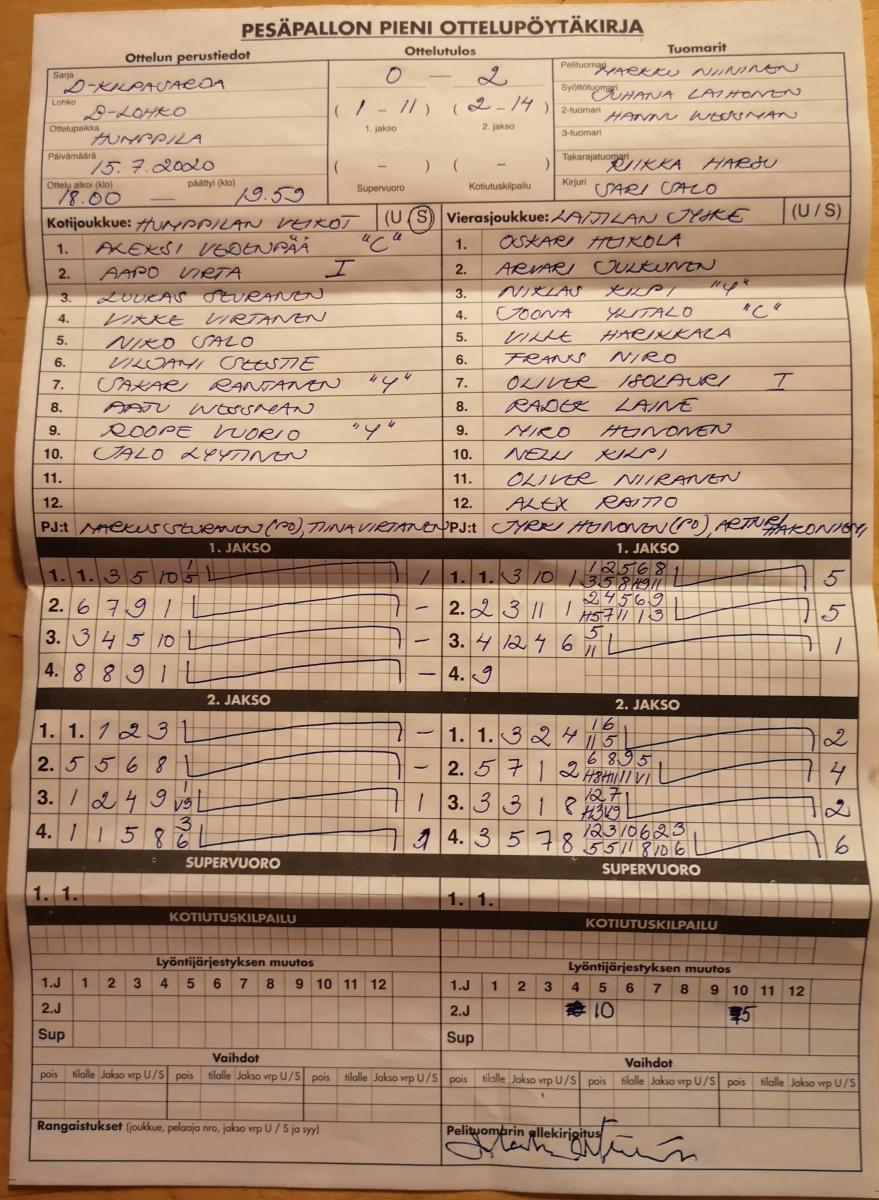 PESÄPALLON PIENI OTTELUPÖYTÄKIRJA
Ottelun perustiedot
Ottelutulos
Tuomarit
Sarja
D-KILPASARJA
0 — 2
Pelituomari
MARKKU NIININEN
Syöttötuomari
JUHANA LAIHONEN
Lohko
D-LOHKO
( 1 - 11 ) ( 2 - 14 )
1. jakso
2. jakso
2-tuomari
HANNU WESSMAN
Ottelupaikka
HUMPPILA
3-tuomari
Päivämäärä
15.7.2020
( - ) ( - )
Takarajatuomari
RIIKKA HARSU
Ottelu alkoi (klo)
päättyi (klo)
18.00 — 19.59
Supervuoro
Kotiutuskilpailu
Kirjuri
SARI SALO
Kotijoukkue: HUMPPILAN VEIKOT (U / S)
1. ALEKSI VEDENPÄÄ "C"
2. AAPO VIRTA I
3. LUUKAS SEURANEN
4. VIKKE VIRTANEN
5. NIKO SALO
6. VILJAMI SEESTIE
7. SAKARI RANTANEN "Y"
8. AATU WESSMAN
9. ROOPE VUORIO "Y"
10. JALO LYYTINEN
11.
12.
PJ:t MARKUS SEURANEN (PJ), TIINA VIRTANEN
Vierasjoukkue: LAITILAN JYSKE (U / S)
1. OSKARI HEIKOLA
2. ARVARI JULKUNEN
3. NIKLAS KILPI "Y"
4. JOONA YLITALO "C"
5. VILLE HARIKKALA
6. FRANS NIRO
7. OLIVER ISOLAURI I
8. RADEK LAINE
9. MIRO HEINONEN
10. NELLI KILPI
11. OLIVER NIIRANEN
12. ALEX RAITIO
PJ:t JYRKI HEINONEN (PJ), ARTTURI HAKONIEMI
1. JAKSO
1. 1. 3 5 10 1 5 1
2. 6 7 9 1 -
3. 3 4 5 10 -
4. 8 8 9 1 -
1. JAKSO
1. 1. 3 10 1 1 2 5 6 8 5
3 5 8 H9 11
2. 2 3 11 1 2 4 5 6 9 5
H5 7 11 1 3
3. 4 12 4 6 5 1
11
4. 9
2. JAKSO
1. 1. 1 2 3 -
2. 5 5 6 8 -
3. 1 2 4 9 1 1
V9
4. 1 1 5 8 3 1
6
2. JAKSO
1. 1. 3 2 4 1 6 2
11 5
2. 5 7 1 2 6 8 9 5 4
H8 H11 11 V1
3. 3 3 1 8 12 7 2
H3 V9
4. 3 5 7 8 12 3 10 6 2 3 6
5 5 11 8 10 6
SUPERVUORO
1. 1.
SUPERVUORO
1. 1.
KOTIUTUSKILPAILU
KOTIUTUSKILPAILU
Lyöntijärjestyksen muutos
1.J 1 2 3 4 5 6 7 8 9 10 11 12
2.J
Sup
Lyöntijärjestyksen muutos
1.J 1 2 3 4 5 6 7 8 9 10 11 12
2.J 10 5
Sup
Vaihdot
pois tilalle Jakso vrp U/S pois tilalle Jakso vrp U/S pois tilalle Jakso vrp U/S
Vaihdot
pois tilalle Jakso vrp U/S pois tilalle Jakso vrp U/S pois tilalle Jakso vrp U/S
Rangaistukset (joukkue, pelaaja nro, jakso vrp U / S ja syy)
Pelituomarin allekirjoitus